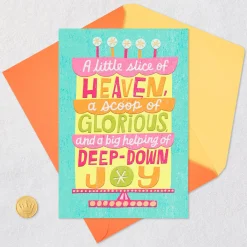 A little slice of
HEAVEN,
a scoop of
GLORIOUS,
and a big helping of
DEEP-DOWN
JOY